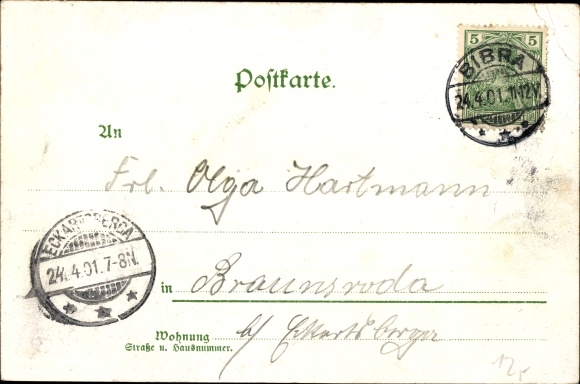 5 5
BIBRA
24.4.01.11-12V
Postkarte.
An
Frl. Olga Hartmann
ECKARTSBERGA
24.4.01.7-8N.
in Braunsroda
Wohnung b/ Eckartsberga
Straße u. Hausnummer.
12,-